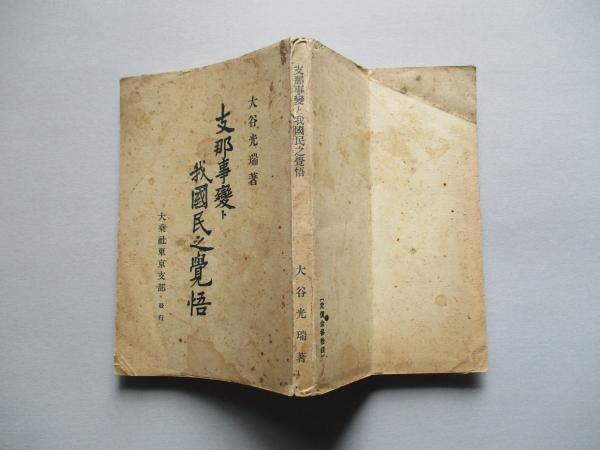 大谷光瑞著
支那事變ト
我國民之覺悟
大乘社東京支部・發行
支那事變と我國民之覺悟
大谷光瑞著